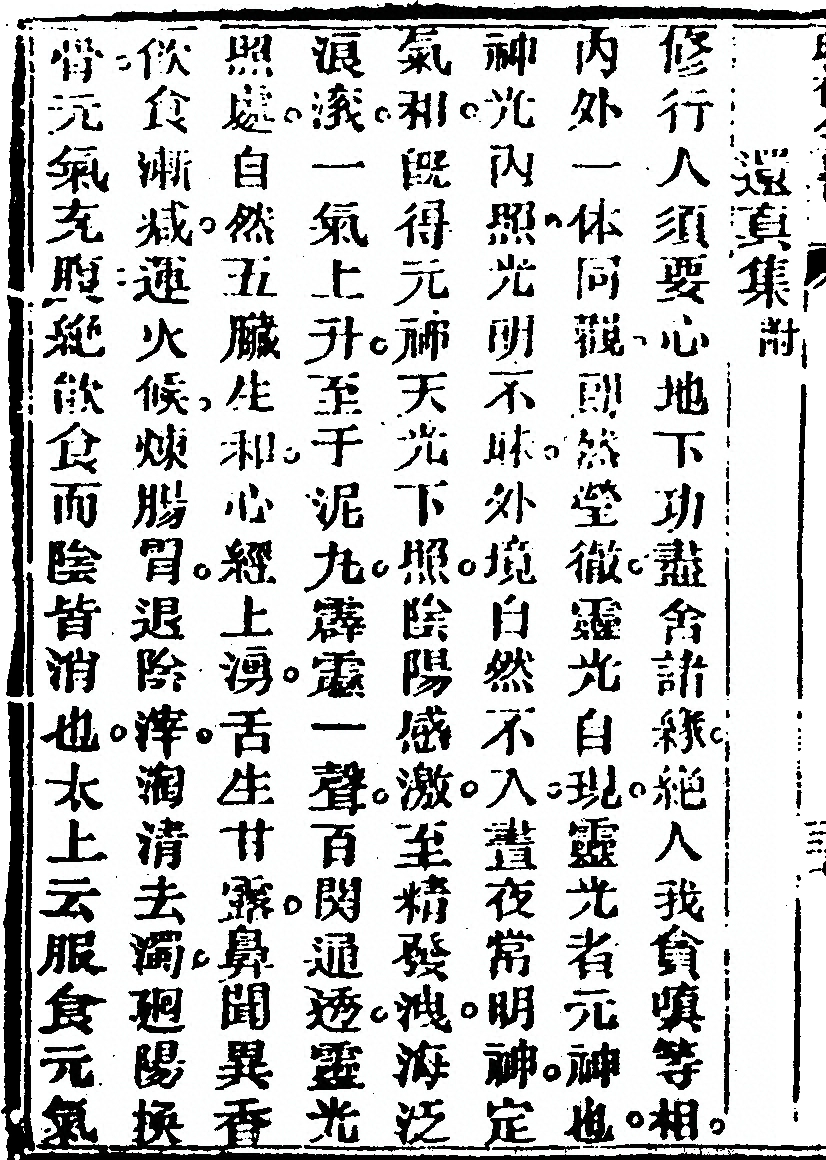 還真集 附
修行人須要心地下功盡舍諸緣。絕人我貪嗔等相。
內外一体同觀、洞然瑩徹。靈光自現。靈光者元神也。
神光內照、光明不昧。外境自然不入。晝夜常明神。定
氣和。旣得元神天光下照。陰陽感激。至精發洩。海泛
浪滾。一氣上升。至于泥九。霹靂一聲。百関通透。靈光
照處。自然五臟生和。心經上湧。舌生甘露。鼻聞異香
飲食漸减。運火候、煉腸胃。退除滓。淘清去濁。廻陽換
骨、元氣充腹、絕飲食而陰皆消也。太上云服食元氣